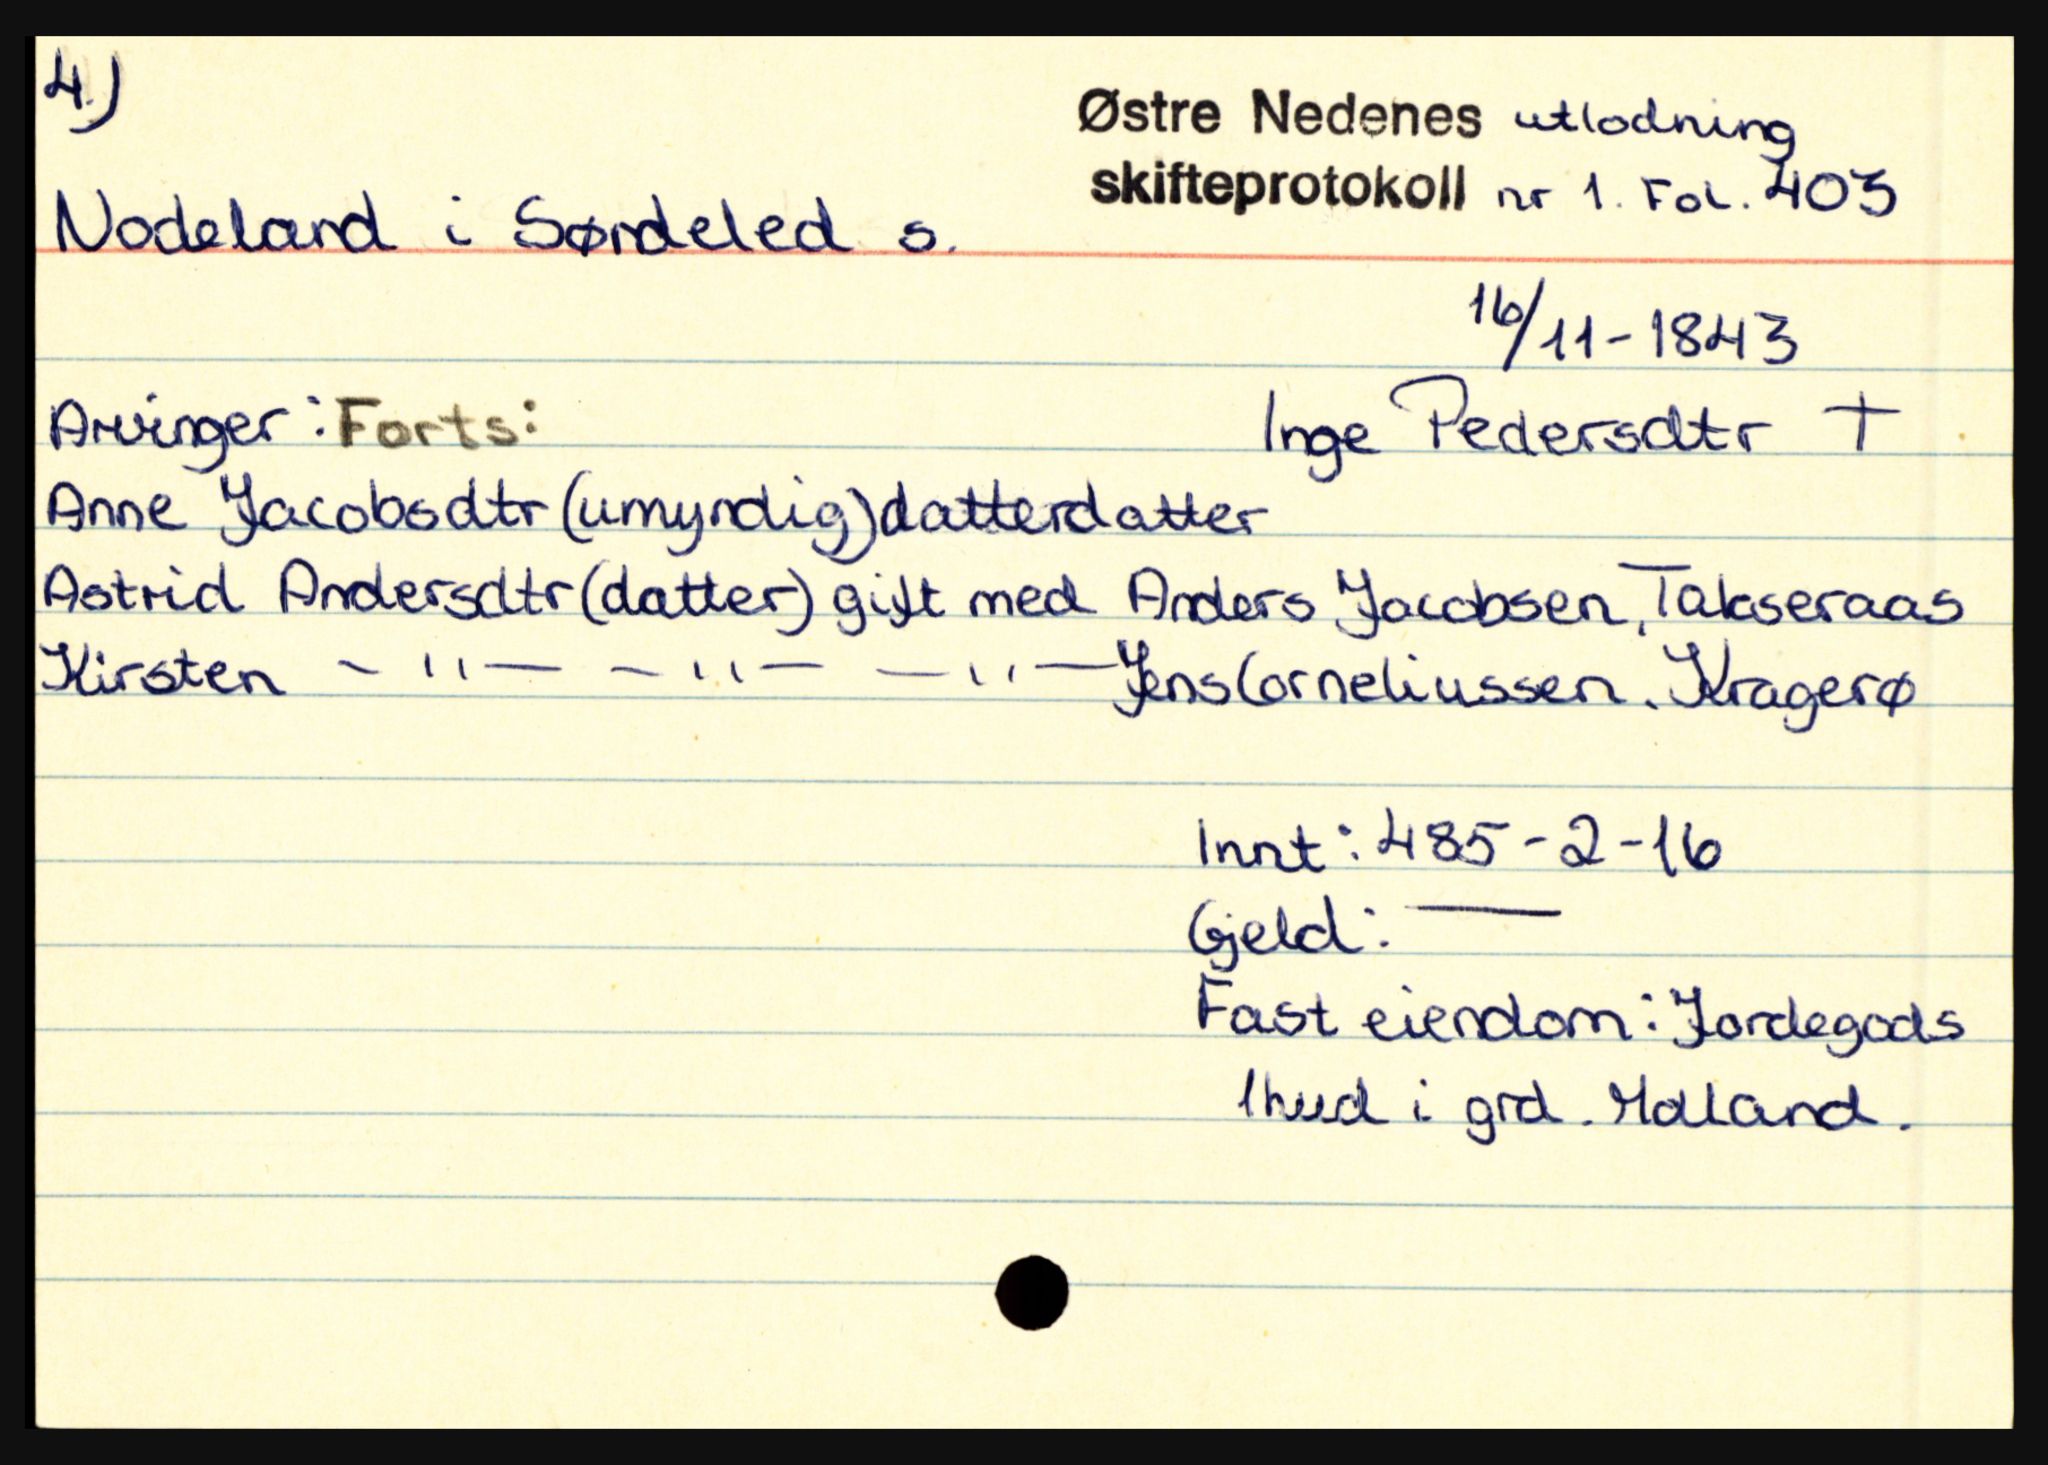 4.)
Østre Nedenes utlodning
skifteprotokoll nr 1. Fol. 403
Nodeland i Søndeled s.
16/11-1843
Arvinger: Forts: Inge Pedersdtr †
Anne Jacobsdtr (umyndig) datterdatter
Astrid Andersdtr (datter) gift med Anders Jacobsen, Takseraas
Kirsten - " - - " - - " - Jens Corneliussen, Kragerø
Innt: 485-2-16
Gjeld: —
Fast eiendom: Jordegods
1 hud i grd.